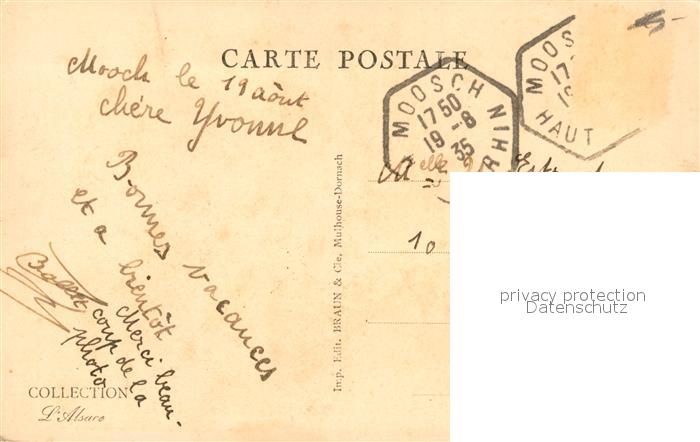 CARTE POSTALE
Mooch le 19 août
chére Yvonne
Bonnes vacances
et a bientôt
Merci beau-
coup de la
photo
COLLECTION
L'Alsace
Imp. Edit. BRAUN & Cie, Mulhouse-Dornach
MOOSCH
17 50
19 -8
35
HAUT RHIN
MOOS
17
19
HAUT
Melle
10
privacy protection
Datenschutz